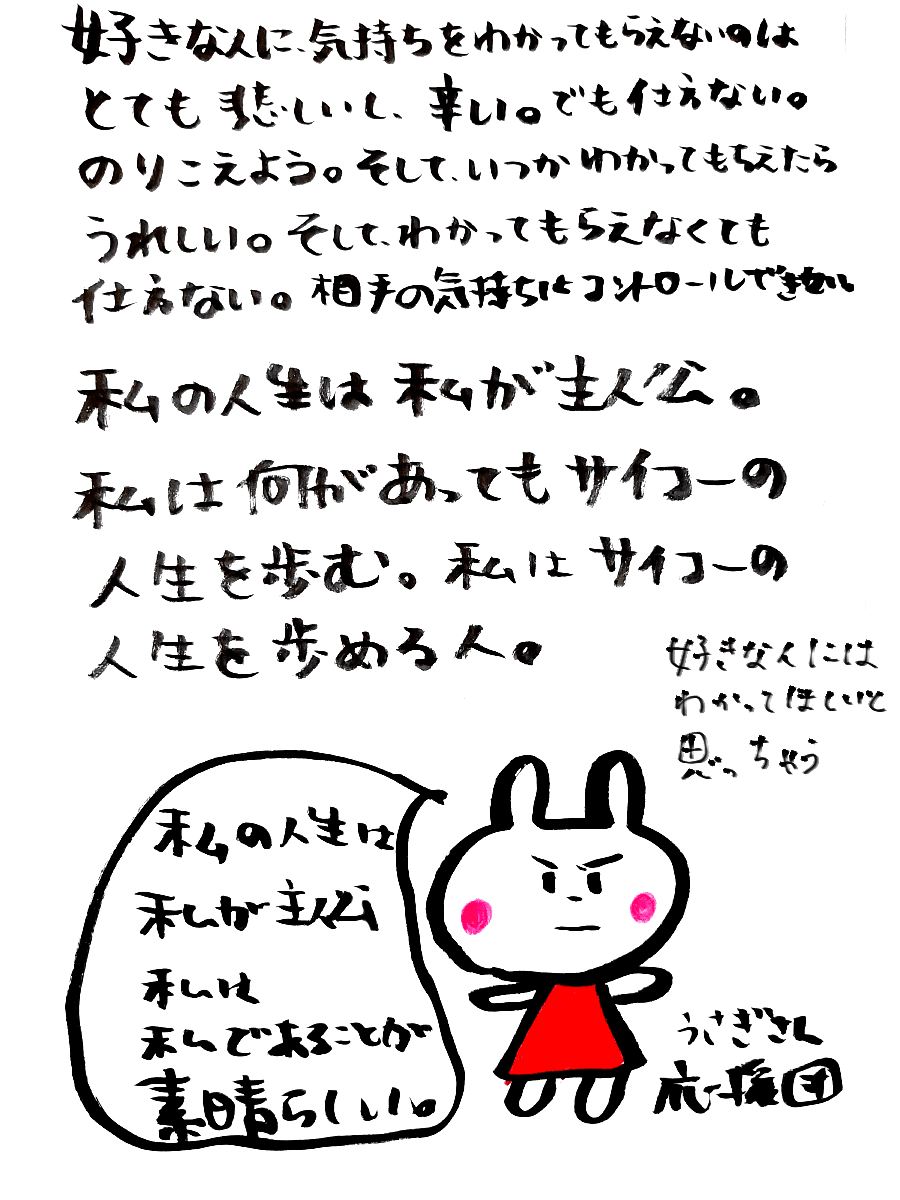 好きな人に、気持ちをわかってもらえないのは
とても悲しいし、辛い。でも仕方ない。
のりこえよう。そして、いつかわかってもらえたら
うれしい。そして、わかってもらえなくても
仕方ない。相手の気持ちはコントロールできない
私の人生は私が主人公。
私は何があってもサイコーの
人生を歩む。私はサイコーの
人生を歩める人。
好きな人には
わかってほしいと
思っちゃう
私の人生は
私が主人公
私は
私であることが
素晴らしい。
うさぎさん
応援団